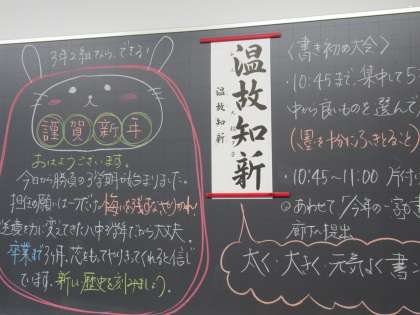 3年2組なら、できる!
謹賀新年
おはようございます。
今日から勝負の3学期が始まりました。
担任の願いは一つだけ。悔いを残すな、やりきれ!
変えてきた八中3学年だから大丈夫。
卒業まで3ヶ月、芯をもってやりきってくれると信じ
ています。新しい歴史を刻みましょう。
温故知新
温故知新
〈書き初め大会〉
・10:45まで、集中して5
中から良いものを選んで
(墨を十分にふきとること)
・10:45~11:00 片付
◎あわせて「今年の一字書
前に提出
太く・大きく・元気よく書